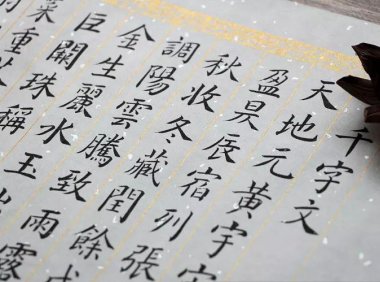 千字文
天地元黃宇
盈昃辰宿列張
秋收冬藏閏餘成
調陽雲騰致雨露
金生麗水玉出
巨闕珠稱
菜重芥